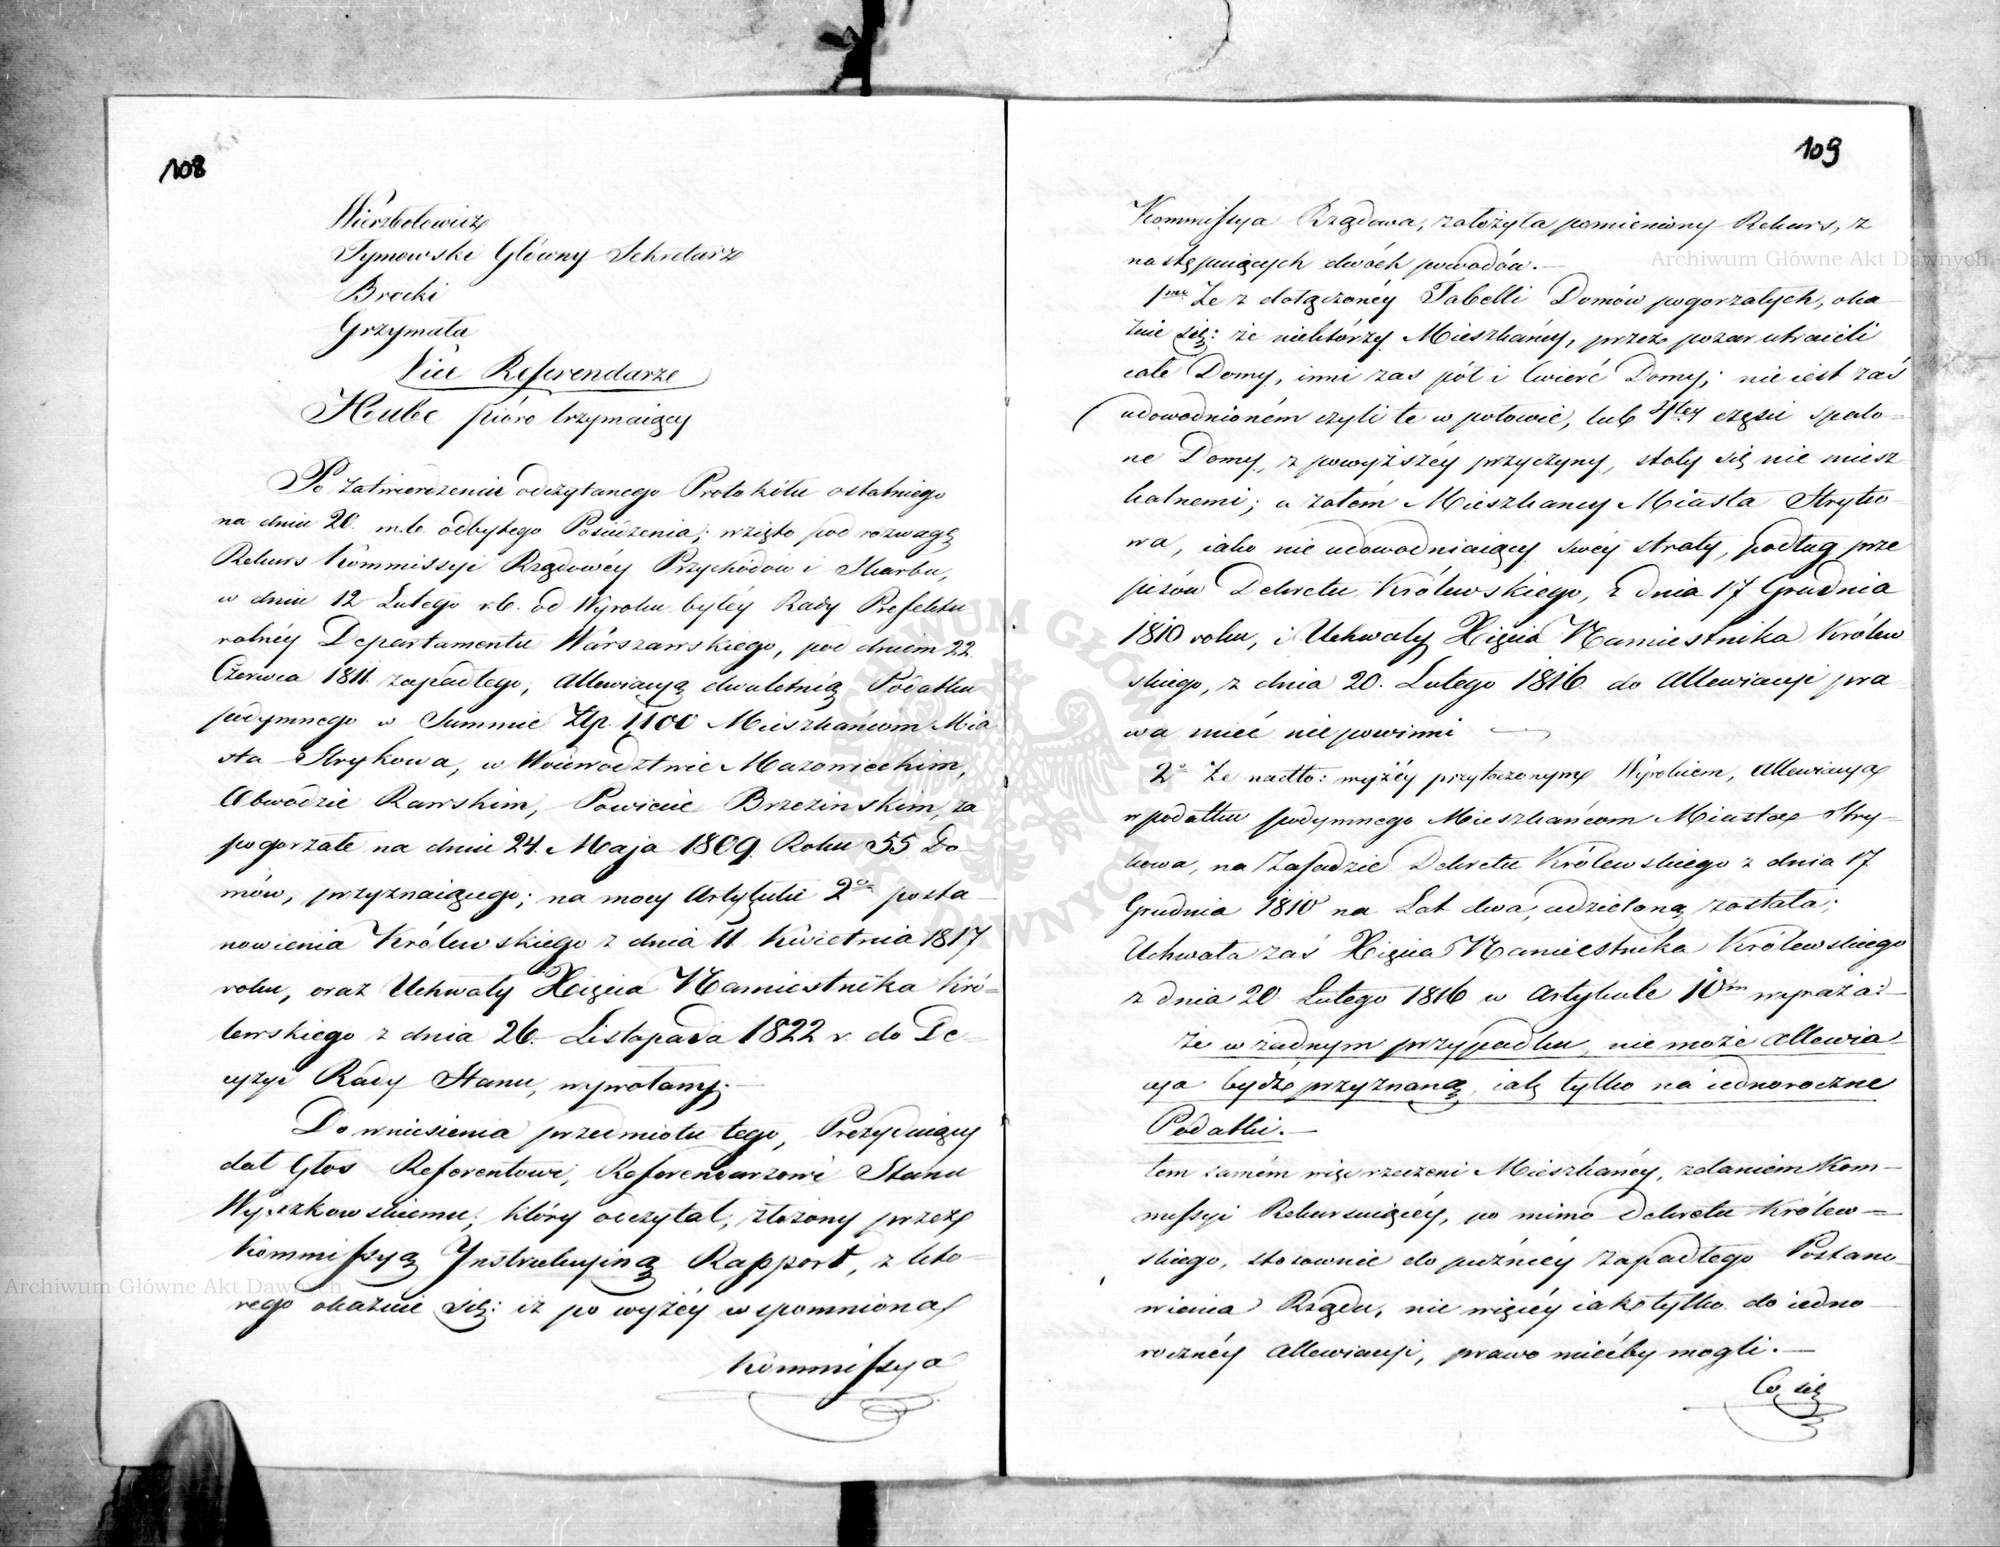 108
Wierzbołowicz
Tymowski Główny Sekretarz
Brocki
Grzymała
Vice Referendarze
Hube pióro trzymaiący
Po zatwierdzeniu odczytanego Protokółu ostatniego
na dniu 20. m.b. odbytego Posiedzenia; wzięto pod rozwagę
Rekurs Kommissyi Rządowéy Przychodów i Skarbu,
w dniu 12 Lutego r.b. od Wyroku byłéy Rady Prefektu
ralnéy Departamentu Warszawskiego, pod dniem 22
Czerwca 1811. zapadłego, Allewiacyą dwuletnią Podatku
podymnego w Summie Złp. 1,100 Mieszkańcom Mia
sta Strykowa, w Woiewództwie Mazowieckim,
Obwodzie Rawskim, Powiecie Brzezinskim, za
pogorzałe na dniu 24. Maja 1809. Roku 55 Do
mów, przyznaiącego; na mocy Artykułu 2o posta
nowienia Królewskiego z dnia 11 Kwietnia 1817
roku, oraz Uchwały Xięcia Namiestnika Kró=
lewskiego z dnia 26. Listopada 1822 r. do De-
cyzyi Rady Stanu, wywołany.—
Do wniesienia przedmiotu tego, Prezyduiący
dał Głos Referentowi, Referendarzowi Stanu
Wyczkowskiemu, który odczytał, złożony przez
Kommissyą Instrukcyiną Rapport, z któ-
rego okazuie się: iż po wyżéy wspomniona
Kommissya
109
Kommissya Rządowa, założyła pomieniony Rekurs, z
następuiących dwóch powodów.—
1mo Że z dołączonéy Tabelli Domów pogorzałych, oka
zuie się: że niektórzy Mieszkańcy, przez pożar utracili
całe Domy, inni zas pół i ćwierć Domy; nie iest zaś
udowodnioném czyli te w połowie, lub 4tey części spalo-
ne Domy, z powyższéy przyczyny, stały się nie miesz
kalnemi; a zatém Mieszkancy Miasta Stryko-
wa, iako nie udowodniaiący swéy straty, podług prze
pisów Dekretu Królewskiego, z dnia 17 Grudnia
1810 roku, i Uchwały Xięcia Namiestnika Królew
skiego, z dnia 20. Lutego 1816. do Allewiacyi pra
wa mieć nie powinni —
2o Że nadto: wyżéy przytoczonym Wyrokiem, Allewiacya
w podatku podymnego Mieszkańcom Miasta Stry-
kowa, na Zasadzie Dekretu Królewskiego z dnia 17
Grudnia 1810 na Lat dwa, udzieloną została;
Uchwała zaś Xięcia Namiestnika Królewskiego
z dnia 20. Lutego 1816 w Artykule 10m wyraża:
że w żadnym przypadku, nie może Allewia
cya bydź przyznaną, iak tylko na iednoroczne
Podatki.—
tem samém więc rzeczeni Mieszkańcy, zdaniem Kom-
missyi Rekursuiącéy, po mimo Dekretu Królew=
skiego, stosownie do późniéy zapadłego Postano-
wienia Rządu, nie więcéy iak tylko do iedno-
rocznéy Allewiacyi, prawo miećby mogli.—
Co się
Archiwum Główne Akt Dawnych
Archiwum Główne Akt Dawnych
ARCHIWUM GŁÓWNE AKT DAWNYCH